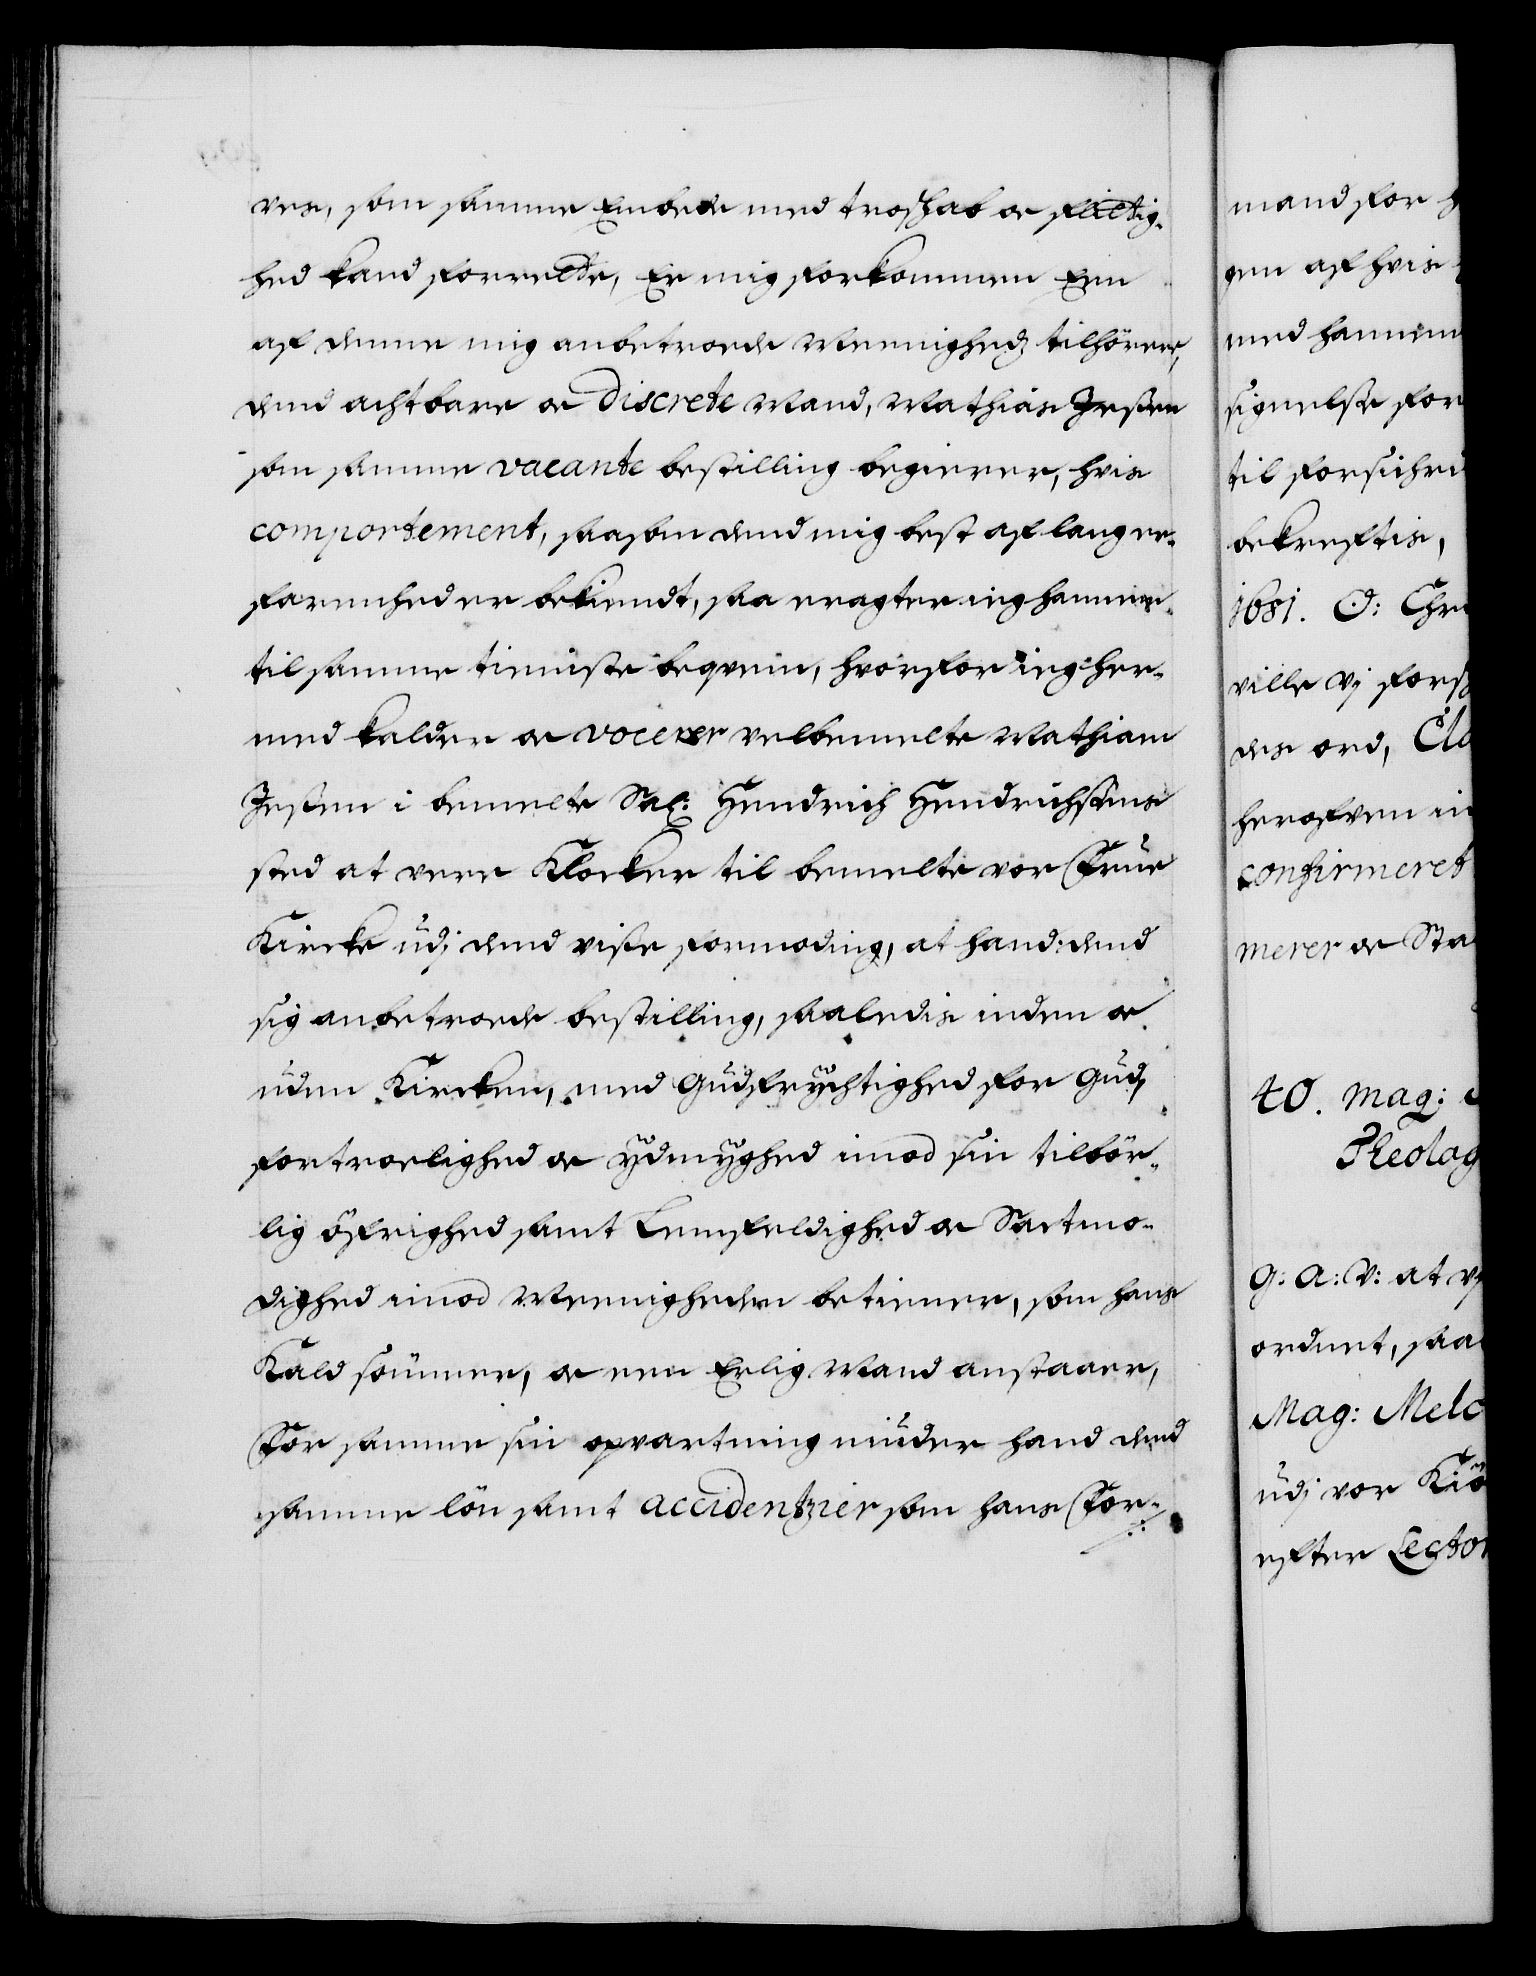 ves, som samme Embede med troschab oc flittig-
hed kand forrette, Er mig forkommen Een
af denne mig anbetroede Meenigheds tilhörere,
dend achtbare oc Discrete Mand, Mathias Jessen
som samme vacante bestilling begierer, hvis
comportement, saasom dend mig best af lang er-
farenhed er bekiendt, saa eragter ieg hannem
til samme tieniste beqvem, hvorfor ieg her-
med kalder oc vocerer velbemelte Mathiam
Jessen i bemelte Sal: Hendrich Hendrichssens
sted at vere Klocker til bemelte vor Frue
Kircke udj dend visse formoding, at hand dend
sig anbetroede bestilling, saaledis inden oc
uden Kircken, med Gudsfrychtighed for Gud,
fortroelighed oc ydmyghed imod sin tilbör-
lig öfrighed samt Lemfeldighed oc Sactmo-
dighed imod Meenigheden betiener, som hans
Kald sömmer, oc een Erlig Mand anstaaer,
For samme sin opvartning niuder hand dend
samme lön samt accidentzier som hans For-
mand for
gen af hvis
med hannem
signelse for
til forsichri
bekreftis,
1681. O: Chr
ville vj fors
des ord, Cla
herofven in
confirmeret
merer oc Sta
40. Mag:
Theolog
G: A: V: at vj
ordnet, saa
Mag: Melc
udj vor Kiö
efter Lector